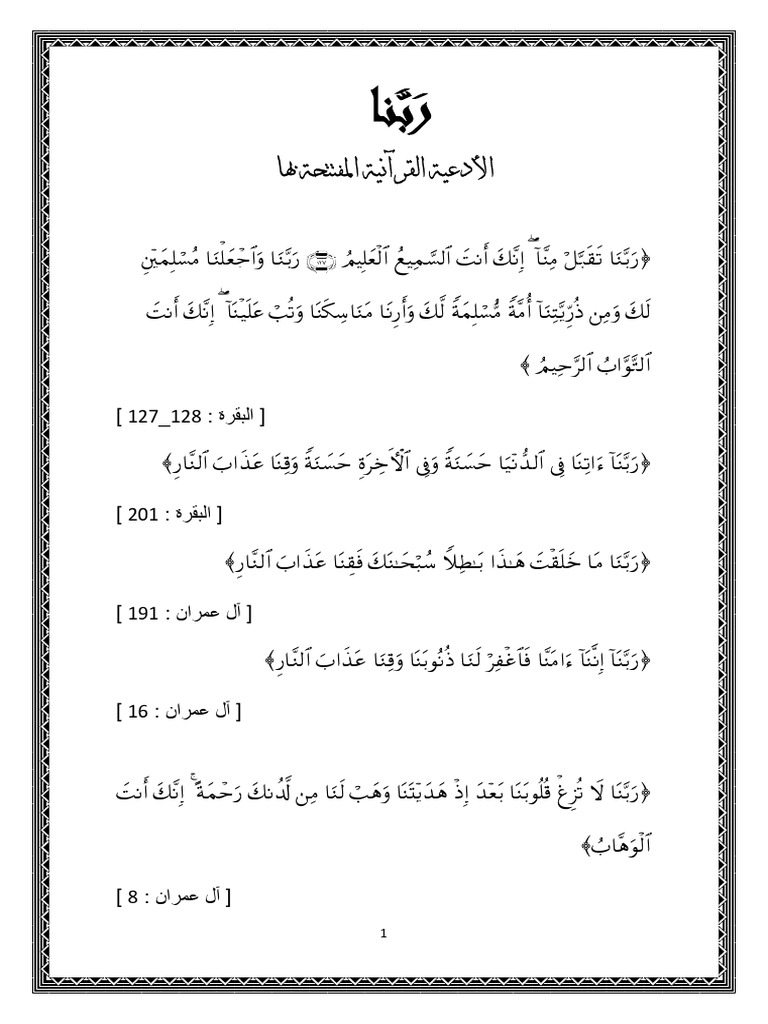 رَبَّنا
الأدعية القرآنية المفتتحة بها
﴿رَبَّنَا تَقَبَّلۡ مِنَّآۖ إِنَّكَ أَنتَ ٱلسَّمِيعُ ٱلۡعَلِيمُ ١٢٧ رَبَّنَا وَٱجۡعَلۡنَا مُسۡلِمَيۡنِ
لَكَ وَمِن ذُرِّيَّتِنَآ أُمَّةٗ مُّسۡلِمَةٗ لَّكَ وَأَرِنَا مَنَاسِكَنَا وَتُبۡ عَلَيۡنَآۖ إِنَّكَ أَنتَ
ٱلتَّوَّابُ ٱلرَّحِيمُ ﴾
[ البقرة : 128_127 ]
﴿رَبَّنَآ ءَاتِنَا فِي ٱلدُّنۡيَا حَسَنَةٗ وَفِي ٱلۡأٓخِرَةِ حَسَنَةٗ وَقِنَا عَذَابَ ٱلنَّارِ﴾
[ البقرة : 201 ]
﴿رَبَّنَا مَا خَلَقۡتَ هَٰذَا بَٰطِلٗا سُبۡحَٰنَكَ فَقِنَا عَذَابَ ٱلنَّارِ﴾
[ آل عمران : 191 ]
﴿رَبَّنَآ إِنَّنَآ ءَامَنَّا فَٱغۡفِرۡ لَنَا ذُنُوبَنَا وَقِنَا عَذَابَ ٱلنَّارِ﴾
[ آل عمران : 16 ]
﴿رَبَّنَا لَا تُزِغۡ قُلُوبَنَا بَعۡدَ إِذۡ هَدَيۡتَنَا وَهَبۡ لَنَا مِن لَّدُنكَ رَحۡمَةًۚ إِنَّكَ أَنتَ
ٱلۡوَهَّابُ﴾
[ آل عمران : 8 ]
1